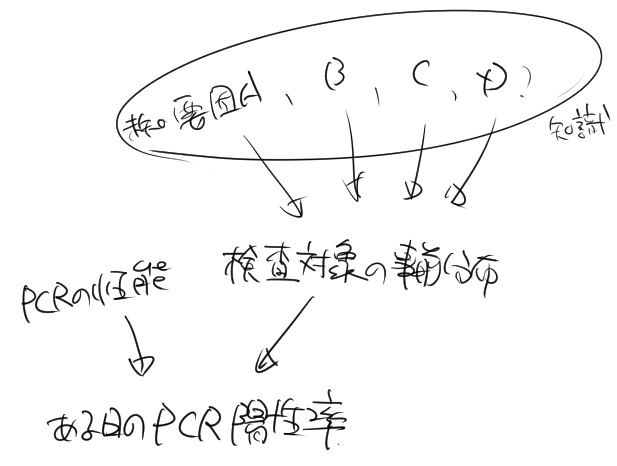 要因A、B、C、D?
知識
検査対象の事前分布
PCRの性能
ある日のPCR陽性率